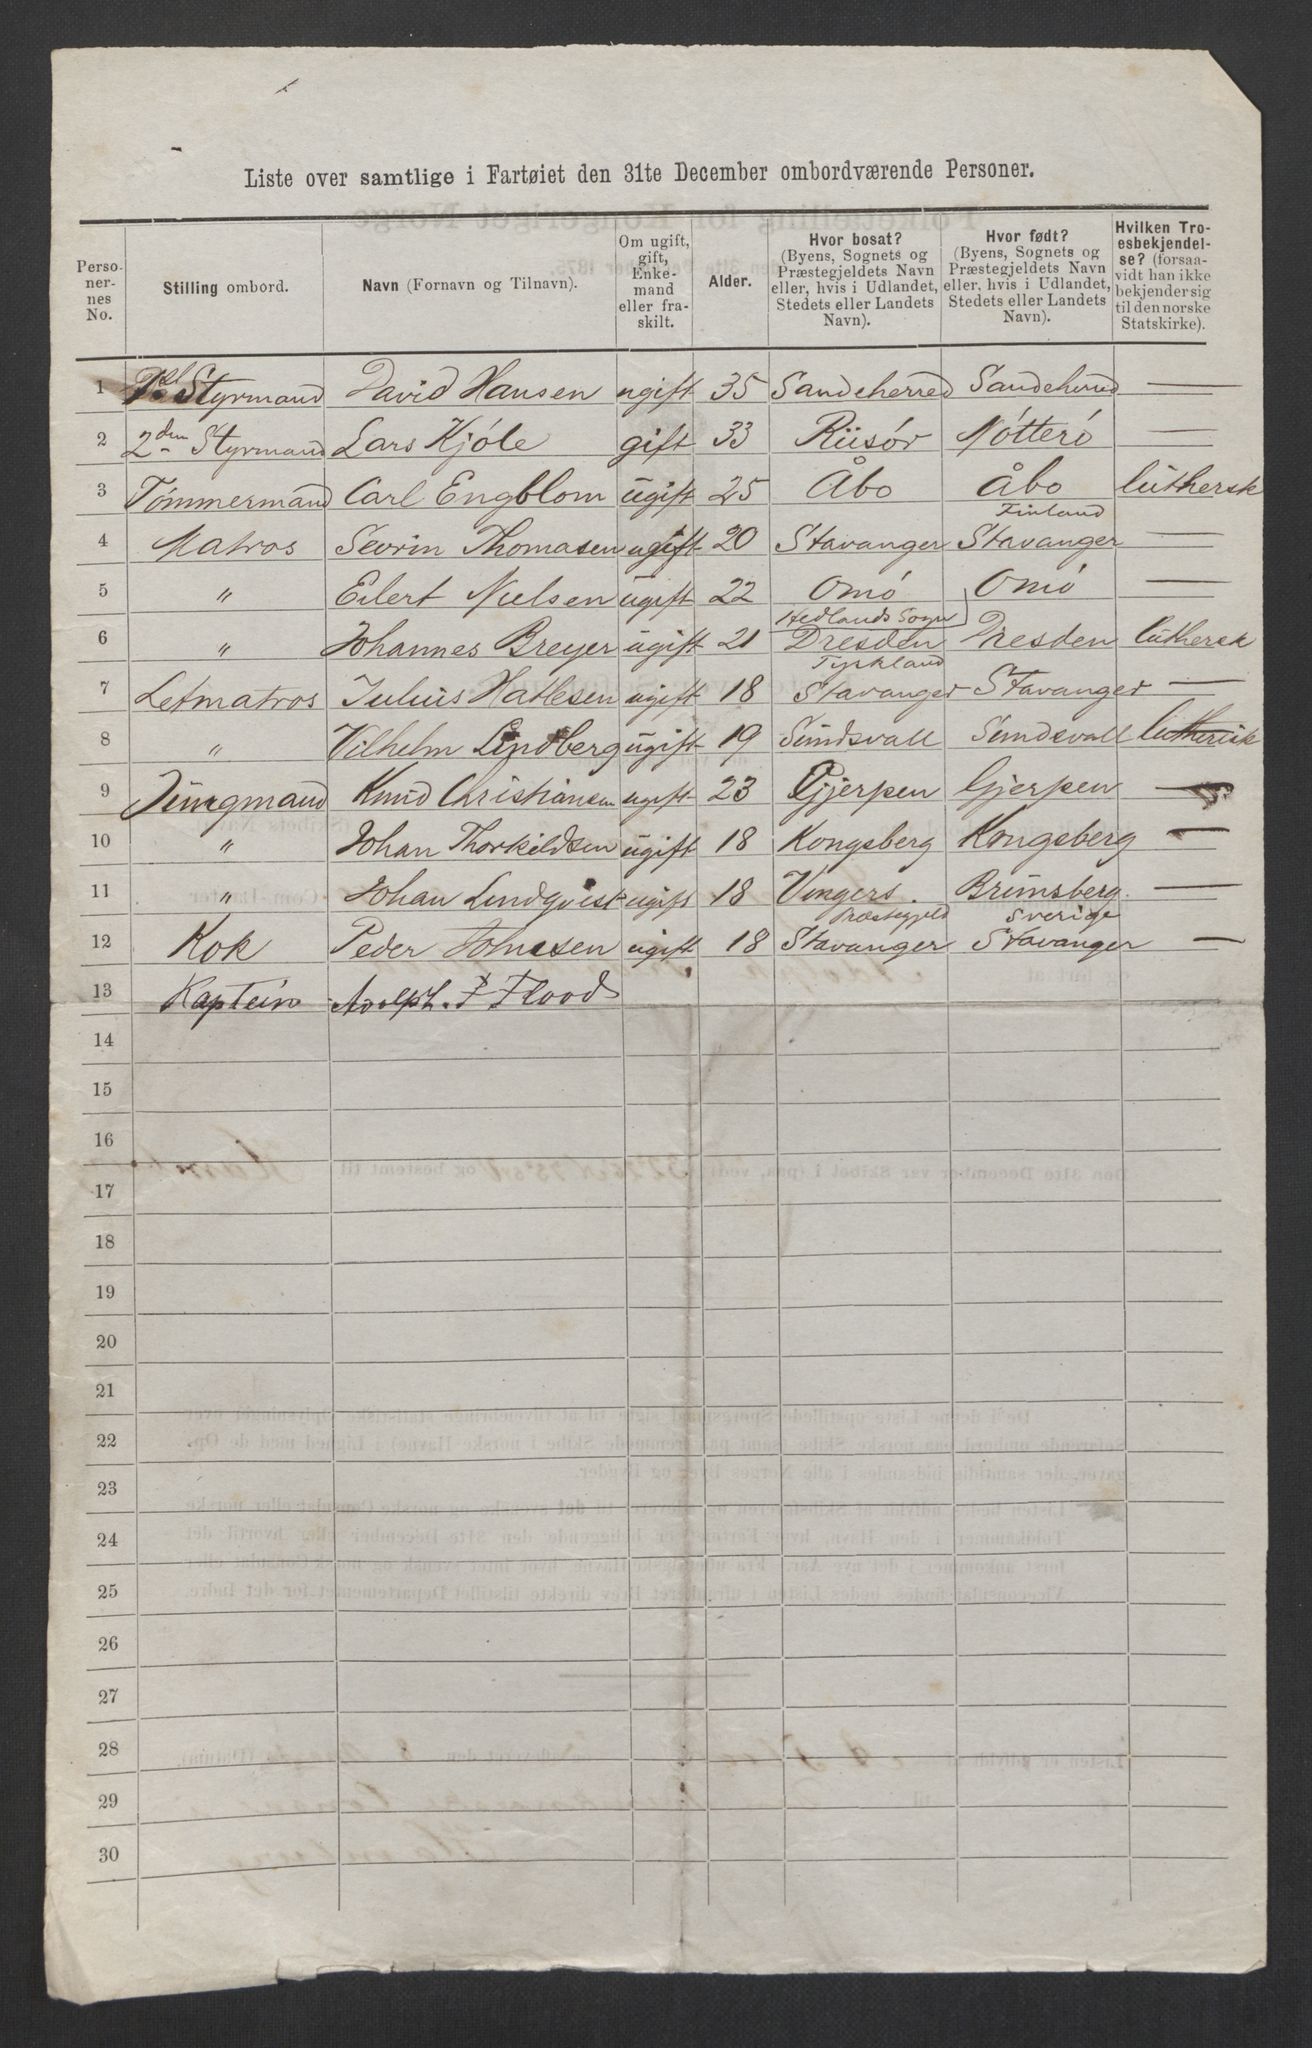 Liste over samtlige i Fartøiet den 31te December ombordværende Personer.
Personernes No. | Stilling ombord. | Navn (Fornavn og Tilnavn). | Om ugift, gift, Enkemand eller fraskilt. | Alder. | Hvor bosat? (Byens, Sognets og Præstegjeldets Navn eller, hvis i Udlandet, Stedets eller Landets Navn). | Hvor født? (Byens, Sognets og Præstegjeldets Navn eller, hvis i Udlandet, Stedets eller Landets Navn). | Hvilken Troesbekjendelse? (forsaavidt han ikke bekjender sig til den norske Statskirke).
1 Styrmand David Hansen ugift 35 Sandeherred Sandeherred —
2 2den Styrmand Lars Kjöle gift 33 Riisör Nötterö —
3 Tömmermand Carl Engblom ugift 25 Åbo Åbo Finland luthersk
4 Matros Sevrin Thomasen ugift 20 Stavanger Stavanger —
5 " Eilert Nielsen ugift 22 Omö Hedlands Sogn Omö —
6 " Johannes Breyer ugift 21 Dresden Tyskland Dresden luthersk
7 Letmatros Julius Hatlesen ugift 18 Stavanger Stavanger —
8 " Vilhelm Lindberg ugift 19 Sundsvall Sundsvall luthersk
9 Jungmand Knud Christiansen ugift 23 Gjerpen Gjerpen —
10 " Johan Thorkildsen ugift 18 Kongsberg Kongsberg —
11 " Johan Lindqvist ugift 18 Vingers Præstegjeld Brunsberg. Sverige —
12 Kok Peder Johnsen ugift 18 Stavanger Stavanger —
13 Kaptein Adolph. F Flood
14
15
16
17
18
19
20
21
22
23
24
25
26
27
28
29
30